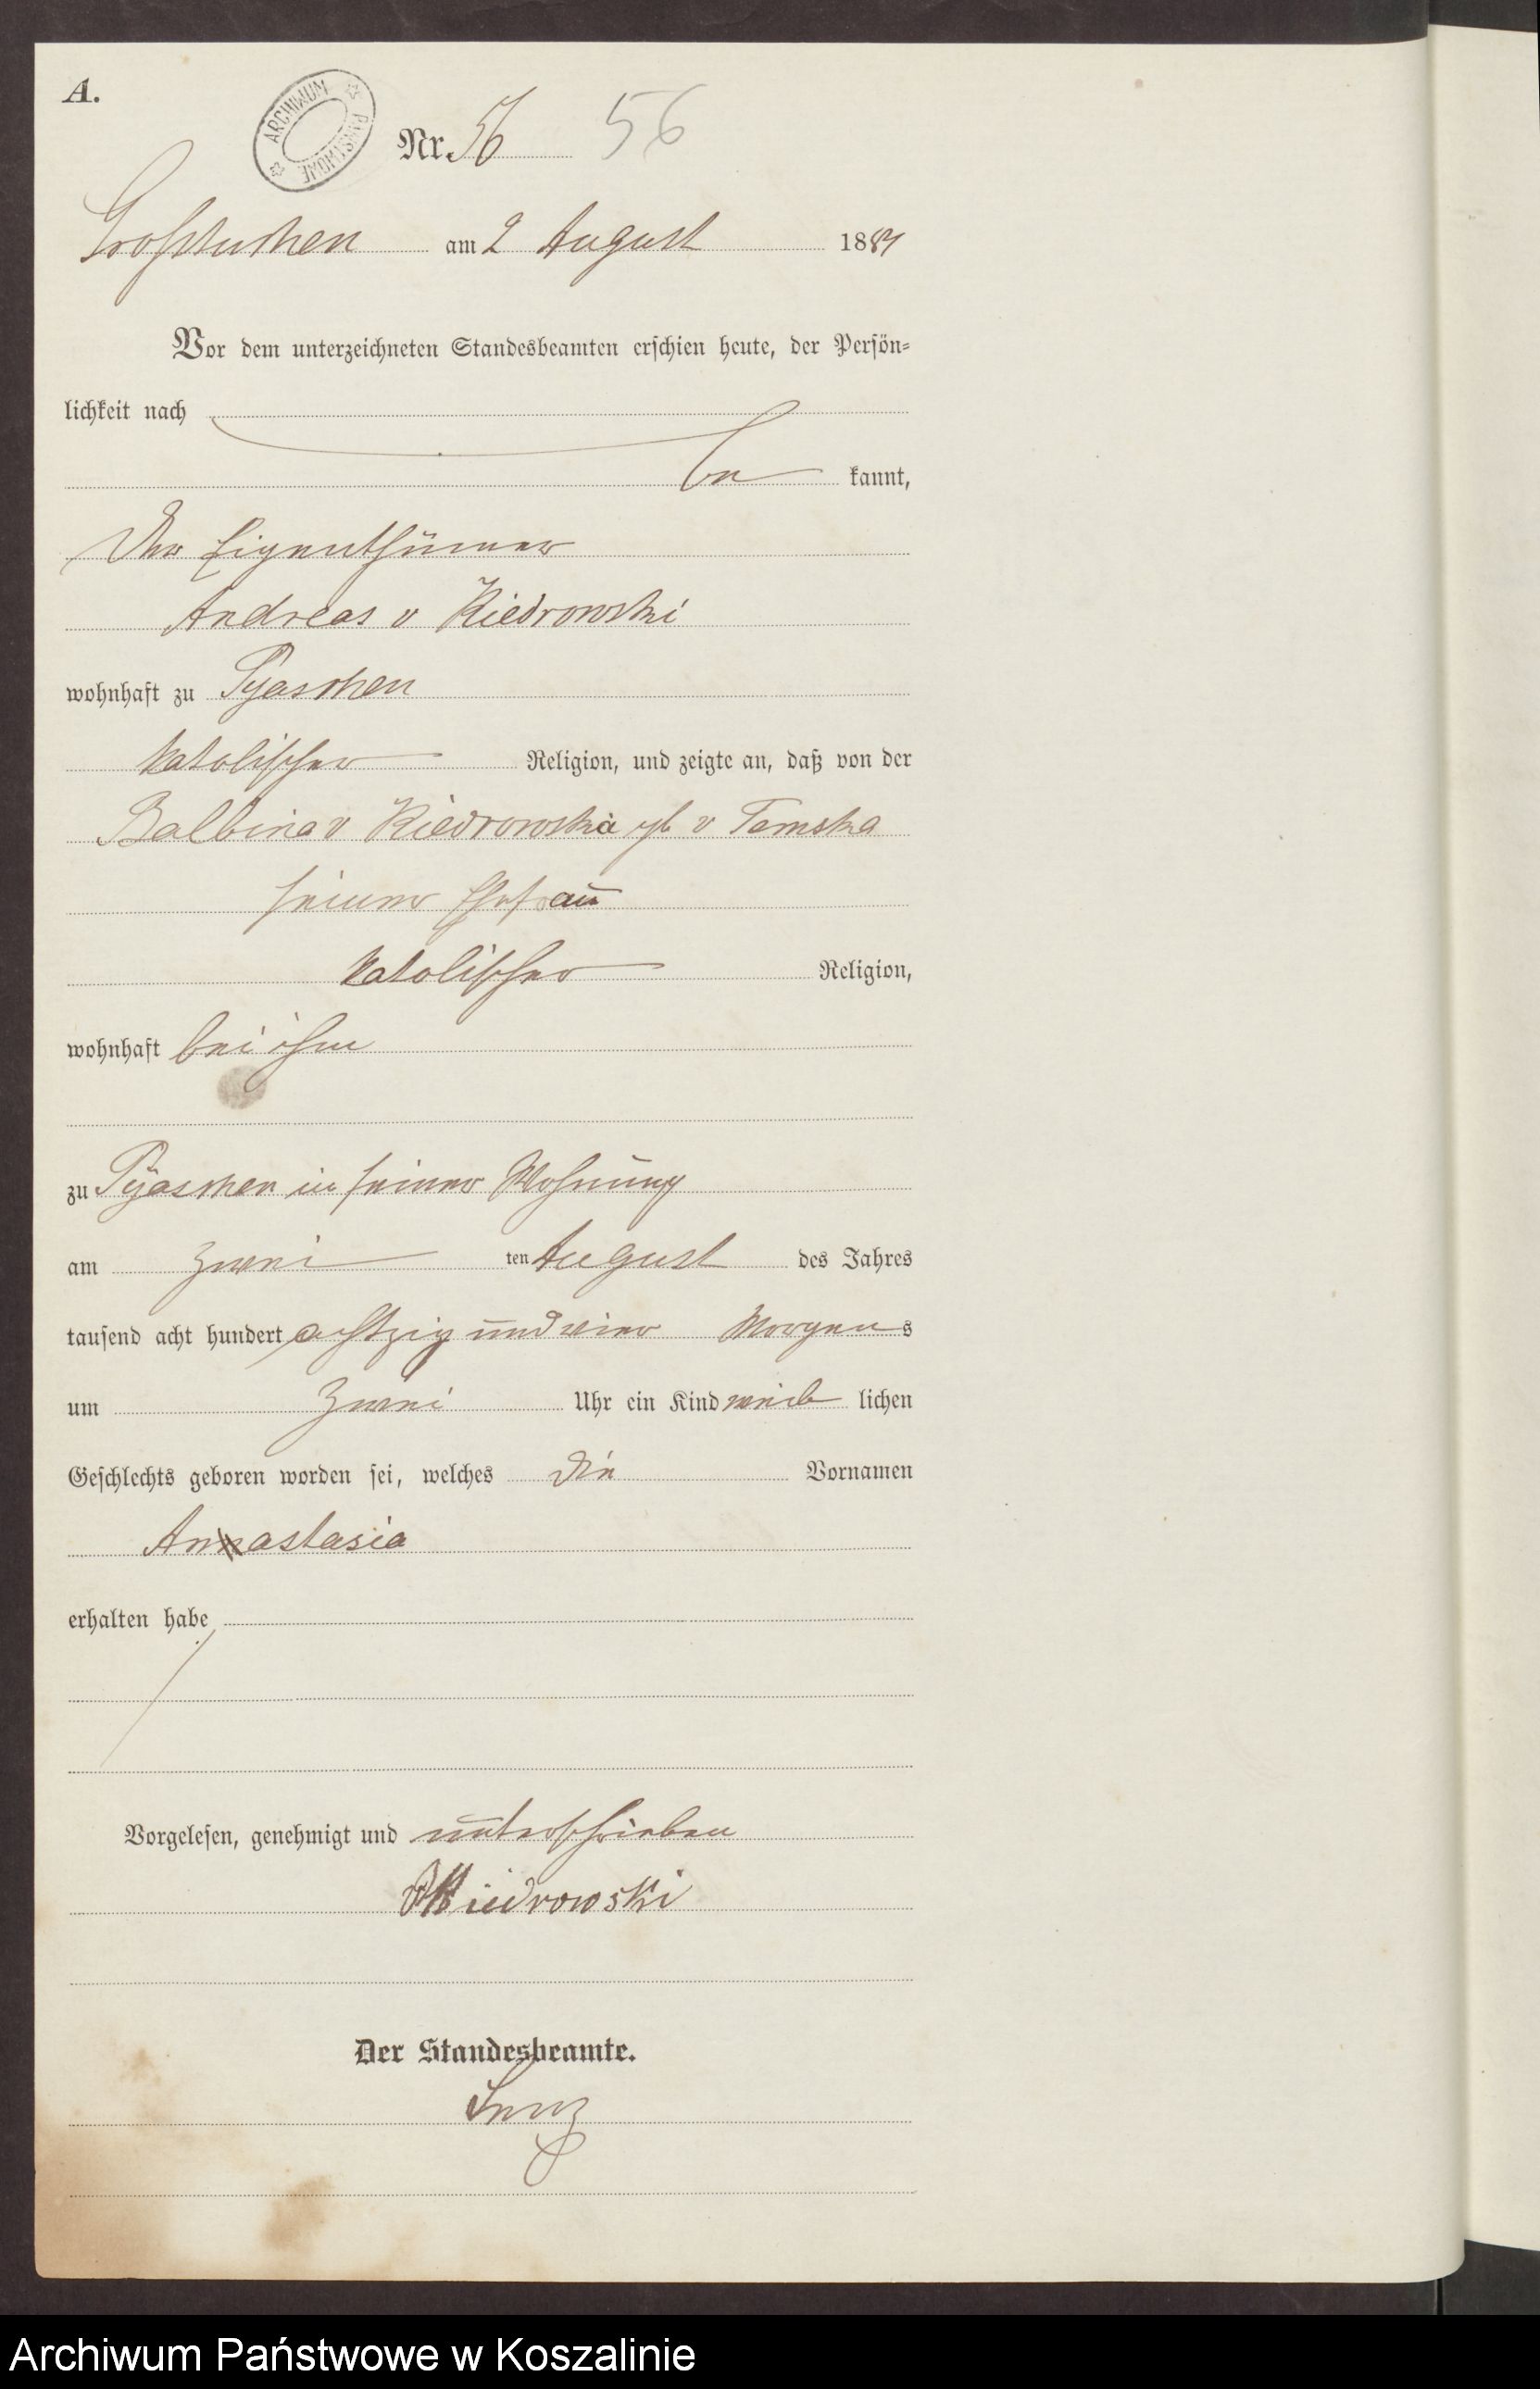 A.
ARCHIWUM PAŃSTWOWE
Nr. 56 56
Großtuchen am 2 August 1884
Vor dem unterzeichneten Standesbeamten erschien heute, der Persön-
lichkeit nach
be kannt,
Der Eigenthümer
Andreas v Kiedrowski
wohnhaft zu Pyaschen
katolischer Religion, und zeigte an, daß von der
Balbina v Kiedrowska gb v Temska
seiner Ehefrau
katolischer Religion,
wohnhaft bei ihm
zu Pyaschen in seiner Wohnung
am zwei ten August des Jahres
tausend acht hundert achtzig und vier Morgens
um zwei Uhr ein Kind weib lichen
Geschlechts geboren worden sei, welches die Vornamen
Anastasia
erhalten habe
Vorgelesen, genehmigt und unterschrieben
v Kiedrowski
Der Standesbeamte.
Lenz
Archiwum Państwowe w Koszalinie